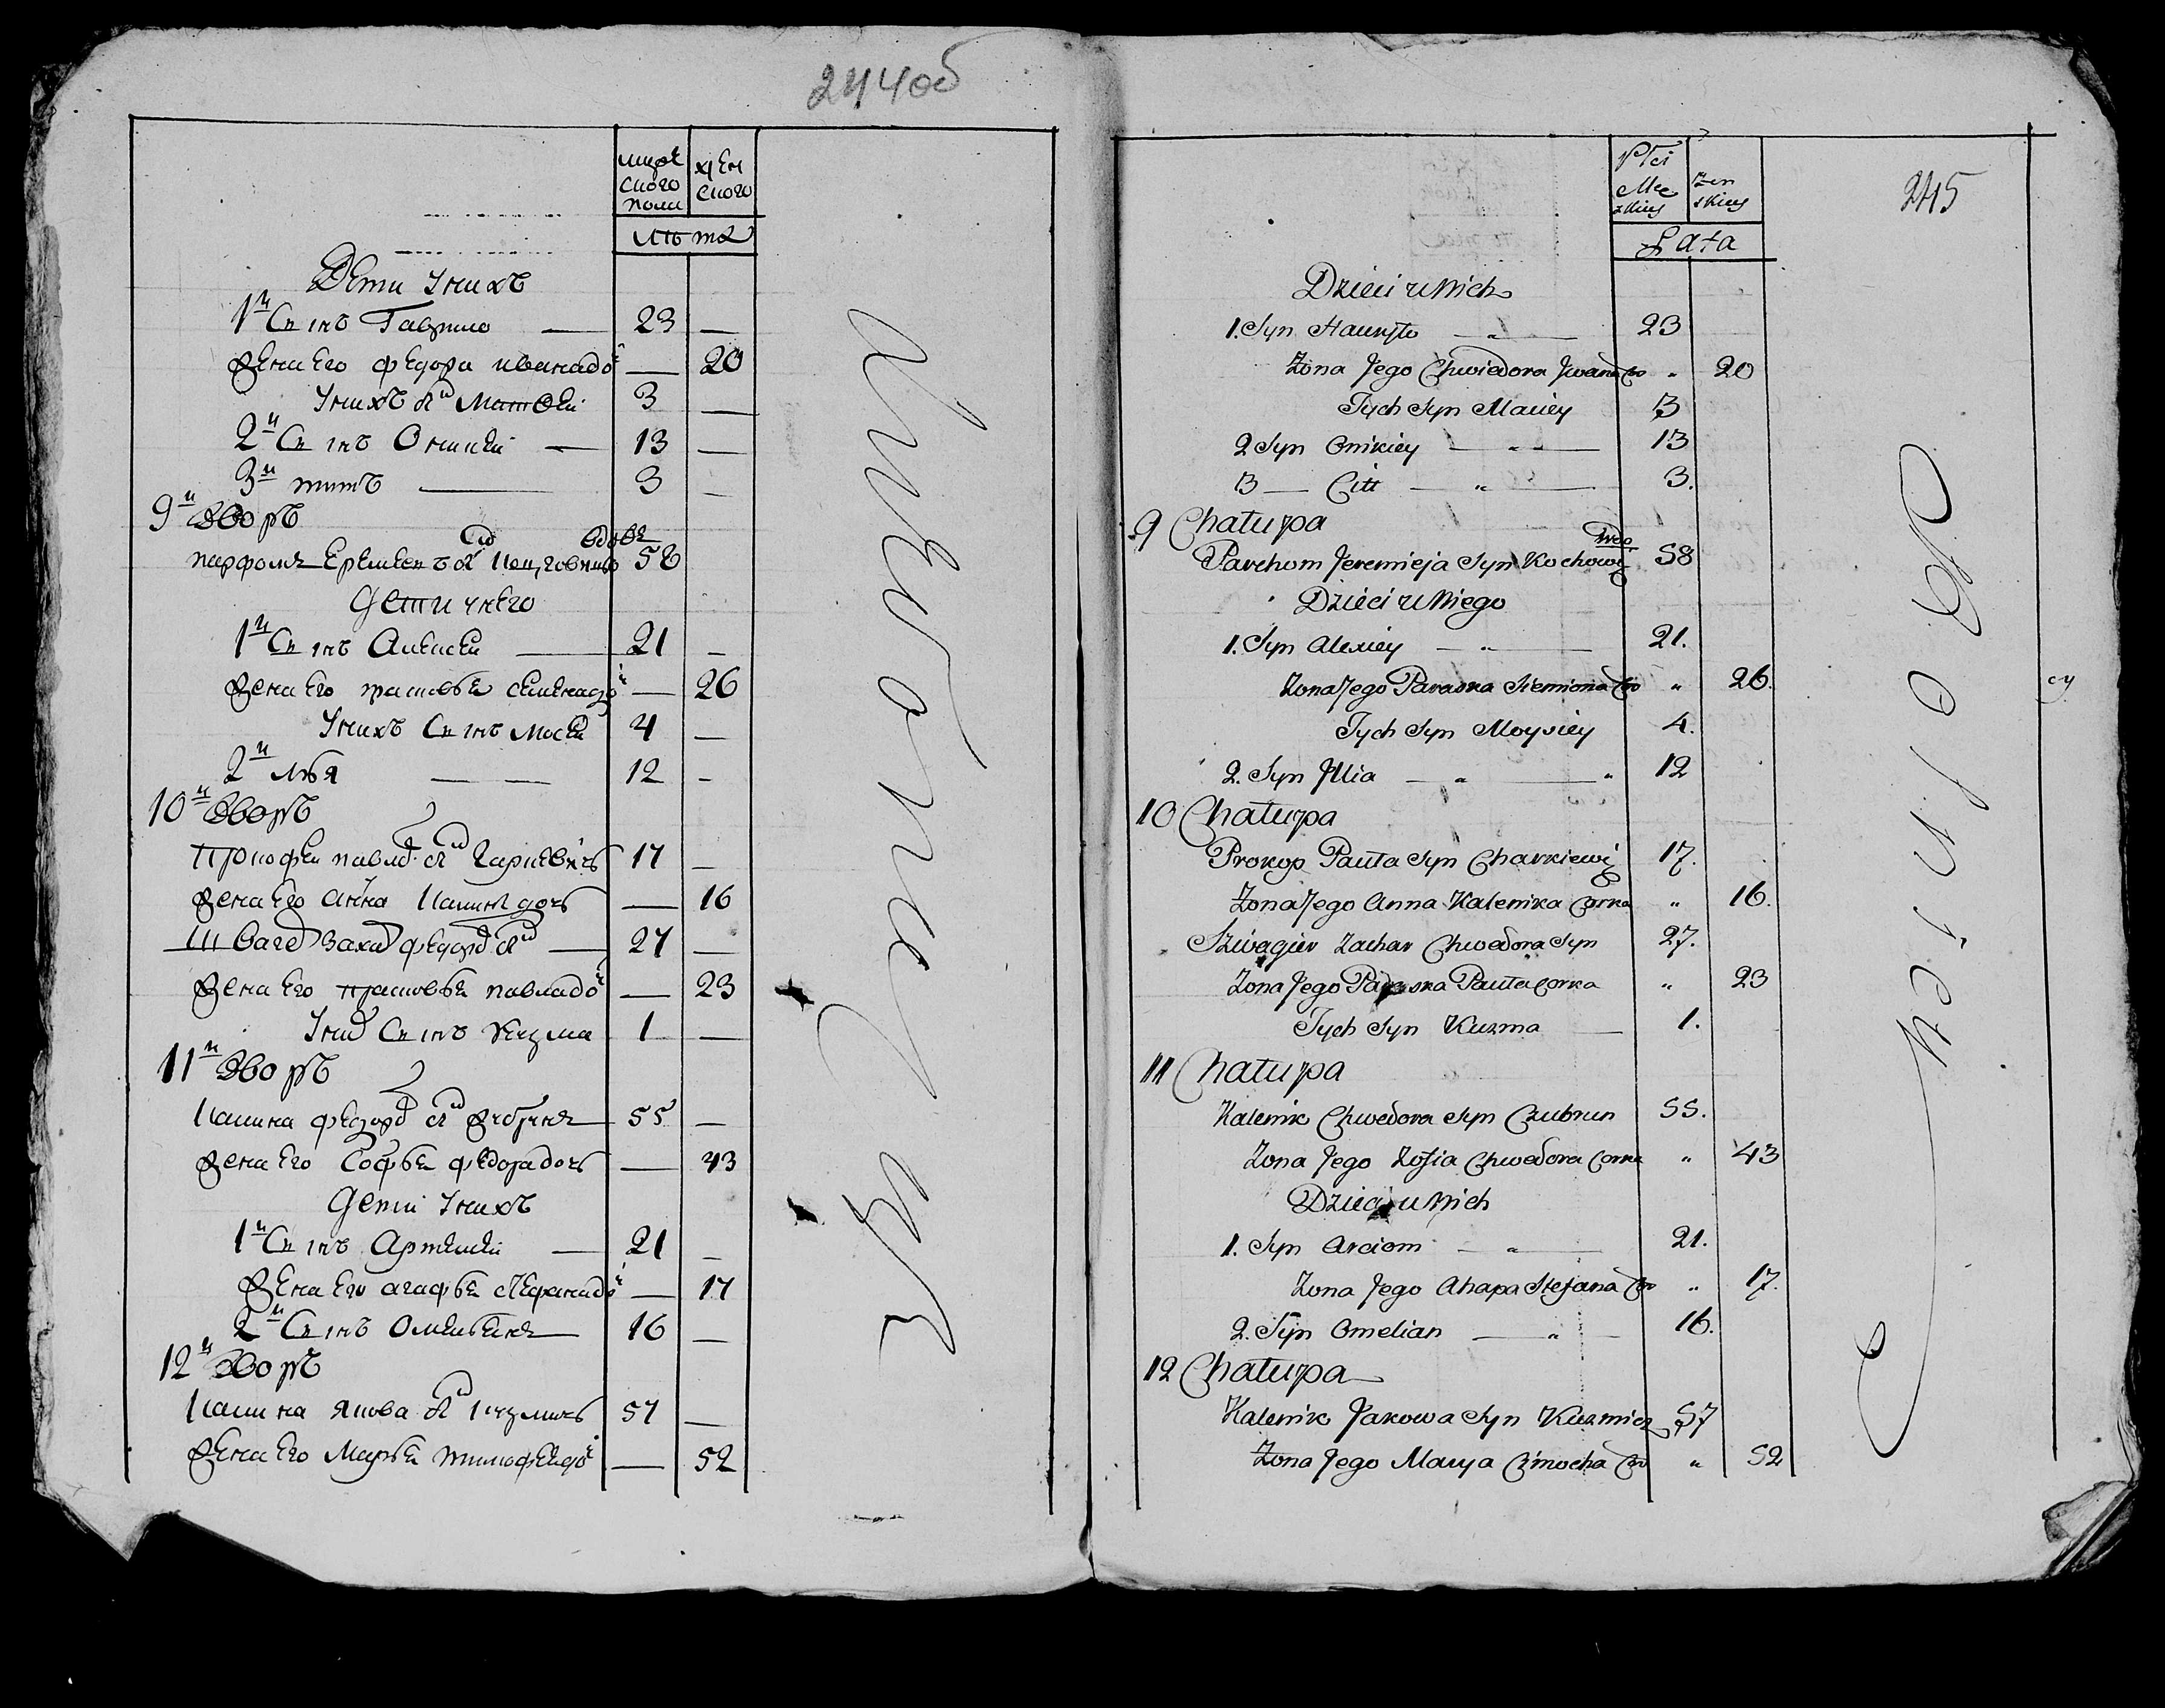 244об
мужескаго полу
женскаго
лѣта
Дети у нихъ
1й Сынъ Гаврило — 23 —
Жена его Федора иванадо — 20
У нихъ сынъ Матѳей 3 —
2й Сынъ Оникей — 13 —
3й титъ — 3 —
9й дворъ
вдовъ
парфомъ Еремеевъ сынъ 58
дети у него
1й Сынъ Алексей — 21 —
Жена его прасковья семенадо — 26
У нихъ Сынъ Мосей 4 —
2й Илья — 12 —
10й дворъ
Прокофей павлов сынъ Харкевичъ 17 —
Жена его Анна Калини дочь — 16
Швагер Захар федоров сынъ — 27 —
Жена его прасковья павладо — 23
У них Сынъ Кузма 1 —
11й дворъ
Калина федоров сынъ 55 —
Жена его Софья федорадочь — 43
Дети у нихъ
1й Сынъ Артемей — 21 —
Жена его агафья стефанадо — 17
2й Сынъ Омельянъ — 16 —
12й дворъ
Калина якова сынъ Кузмичъ 57 —
Жена его Марья тимофеядо — 52
245
Płci
Męzkiey
Zenskiey
Lata
Dzieci u Nich
1. Syn Hauryło — „ — 23
Zona Jego Chwiedora Jwana Co „ 20
Tych Syn Maciey 3
2 Syn Onikiey — „ — 13
3 — Citt — „ — 3.
9 Chatupa
Wdo.
Parchom Jeremieja Syn Kochowi 58
Dzieci u Niego
1. Syn Alexiey — „ — 21.
Zona Jego Paraska Siemiona Co „ 26.
Tych Syn Moysiey 4.
2. Syn Illia — „ — „ 12
10 Chatupa
Prokop Pauła Syn Charkiewicz 17.
Zona Jego Anna Kalenika Corka „ 16.
Szwagier Zachar Chwedora Syn 27.
Zona Jego Paraska Pauła Corka „ 23
Tych Syn Kuzma — 1.
11 Chatupa
Kalenik Chwedora Syn Czubrun 55.
Zona Jego Zofia Chwedora Corka „ 43
Dzieci u Nich
1. Syn Arciom — „ — 21.
Zona Jego Ahapa Stefana Co „ 17.
2. Syn Omelian — „ — 16.
12 Chatupa
Kalenik Jakowa Syn Kuzmicz 57
Zona Jego Marya Cimocha Co „ 52